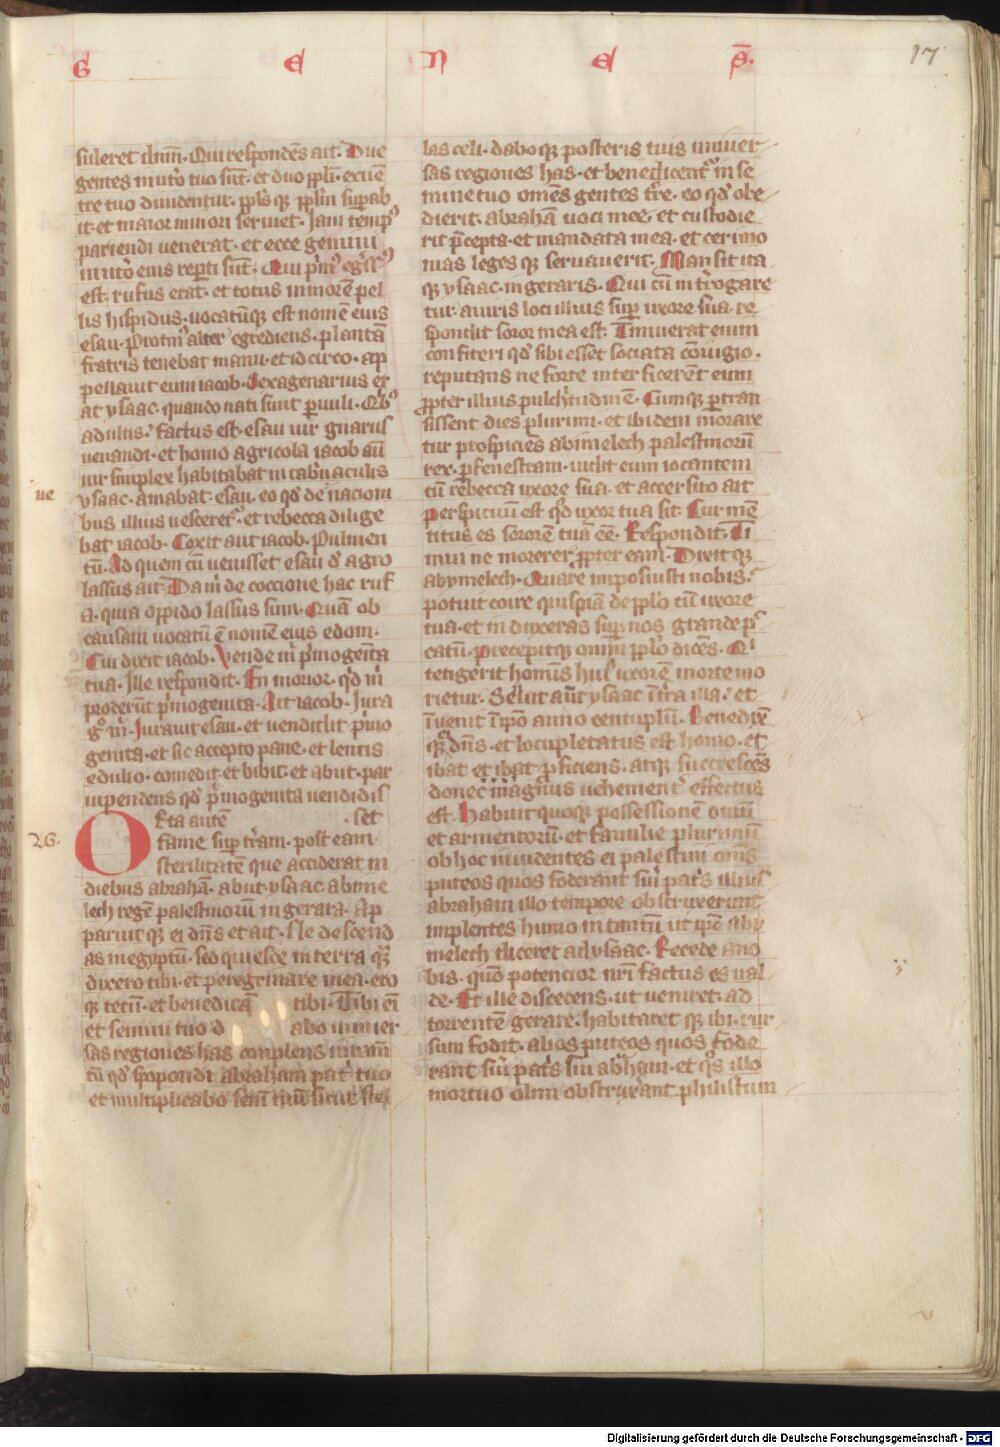 G E N E S̄.
17
suleret dn̄m. Qui respondēs ait. Due
gentes in utō tuo sūt. et duo ppl̄i. ex uē
tre tuo diuidentur. ppl̄s qʒ ppl̄m suꝑab
it. et maior minori seruiet. Jam tempꝰ
pariendi uenerat. et ecce gemini
in utō eius reꝑti sūt. Qui pͥmꝰ egr̄ssꝰ
est. rufus erat. et totus in morē pel
lis hispidus. uocatūqʒ est nomē eius
esau. Protinꝰ alter egrediens. plantā
fratris tenebat manu. et id circo. ap
pellauit eum iacob. Sexagenarius er
at ysaac. quando nati sunt ꝑuuli. Qͥbꝰ
adultis. factus est. esau uir gnarus
uenandi. et homo agricola iacob aūt
uir simplex habitabat in tab̄naculis
ue
ysaac. amabat. esau. eo qd̕ de nacioni
bus illius uesceretᷣ. et rebecca dilige
bat iacob. Coxit aut iacob. pulmen
tū. Ad quem cū uenisset esau d̕ agro
lassus ait. Da m̄ de coccione hac ruf
a. quia oppido lassus sum. Quā ob
causam uocatū ē nomē eius edom.
Cui dixit iacob. Vende m̄ pͥmogenita
tua. Ille respondit. En morior. qͥd m̄
proderūt pͥmogenita. Ait iacob. Jura
gͦ m̄. Jurauit esau. et uendidit pͥmo
genita. et sic accepto pane. et lentis
edulio. comedit. et bibit. et abiit. par
uipendens qd̕ pͥmogenita uendidiss
26.
Orta autē . set
fame suꝑ tr̄am. post eam
sterilitatē que acciderat in
diebus abrahā. abiit. ysaac abime
lech regē palestinorū in gerara. Ap
paruit qʒ ei dn̄s et ait. Ne descend
as in egyptū. sed quiesce in terra quā
dixero tibi. et peregrinare in ea. ero
qʒ tecū. et benedicā tibi. Tibi eī
et semini tuo d abo uniuer
sas regiones has complens iuram̄
tū qd̕ spopondi abraham patͥ tuo
et multiplicabo semē tuū sicut stel
las celi. dabo qʒ posteris tuis uniuer
sas regiones has. et benedicentᷣ in se
mine tuo om̄es gentes tr̄e. eo qd̕ obe
dierit. abrahā uoci mee. et custodie
rit p̄cepta. et mandata mea. et cerimo
nias leges qʒ seruauerit. Mansit ita
qʒ ysaac. in geraris. Qui cū int̄rogare
tur. a uiris loci illius suꝑ uxore sua. re
spondit soror mea est. Timuerat enim
confiteri qd̕ sibi esset sociata cōiugio.
reputans ne forte inter ficerēt eum
ꝓpter illius pulchͥtudinē. Cumqʒ ꝑtran
sissent dies plurimi. et ibidem morare
tur prospiciēs abimelech palestinorū
rex. ꝑ fenestram. uidit eum iocantem
cū rebecca uxore sua. et accersito ait
Perspicuū est qd̕ uxor tua sit. Cur mē
titus es sororē tuā eē. Respondit. Ti
mui ne morerer ꝓpter eam. Dixit qʒ
abymelech. Quare imposuisti nobis.
potuit coire quispiā de ppl̄o cū uxore
tua. et in duxeras suꝑ nos grande pͨ
catū. precepitqʒ omni ppl̄o dicēs. Qͥ
tetigerit hominis huiꝰ uxorē morte mo
rietur. Seuit aūt ysaac ī tr̄a illa. et
īuenit ī ipō anno centuplū. Benedix̄
qʒ dn̄s. et locupletatus est homo. et
ibat et ibat ꝓficiens. atqʒ succrescēs
donec magnus uehement̕ effectus
est. habuit quoqʒ possessionē ouiū
et armentorū. et familie plurimū
ob hoc inuidentes ei palestini om̄s
puteos quos foderant ser̄ui pat̕s illius
abraham illo tempore obstruxerunt
implentes humo in tantū ut ipē aby
melech diceret ad ysaac. Recede a no
bis. quō potencior nr̄i factus es ual
de. Et ille discecens. ut ueniret. ad
torrentē gerare. habitaret qʒ ibi. rur
sum fodit. alios puteos quos fode
rant ser̄ui pat̕s sui abh̄am. et qͦs illo
mortuo olim obstruxerant philistiim
Digitalisierung gefördert durch die Deutsche Forschungsgemeinschaft - DFG